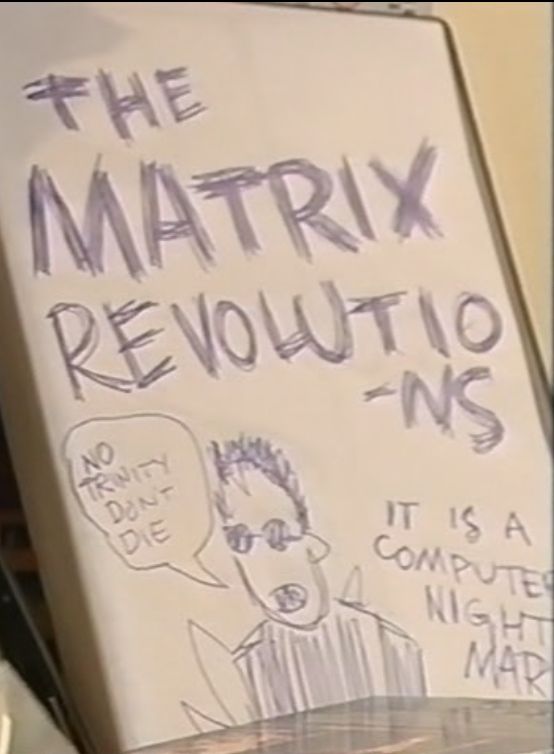 THE
MATRIX
REVOLUTIO
-NS
NO
TRINITY
DON'T
DIE
IT IS A
COMPUTE
NIGHT
MAR